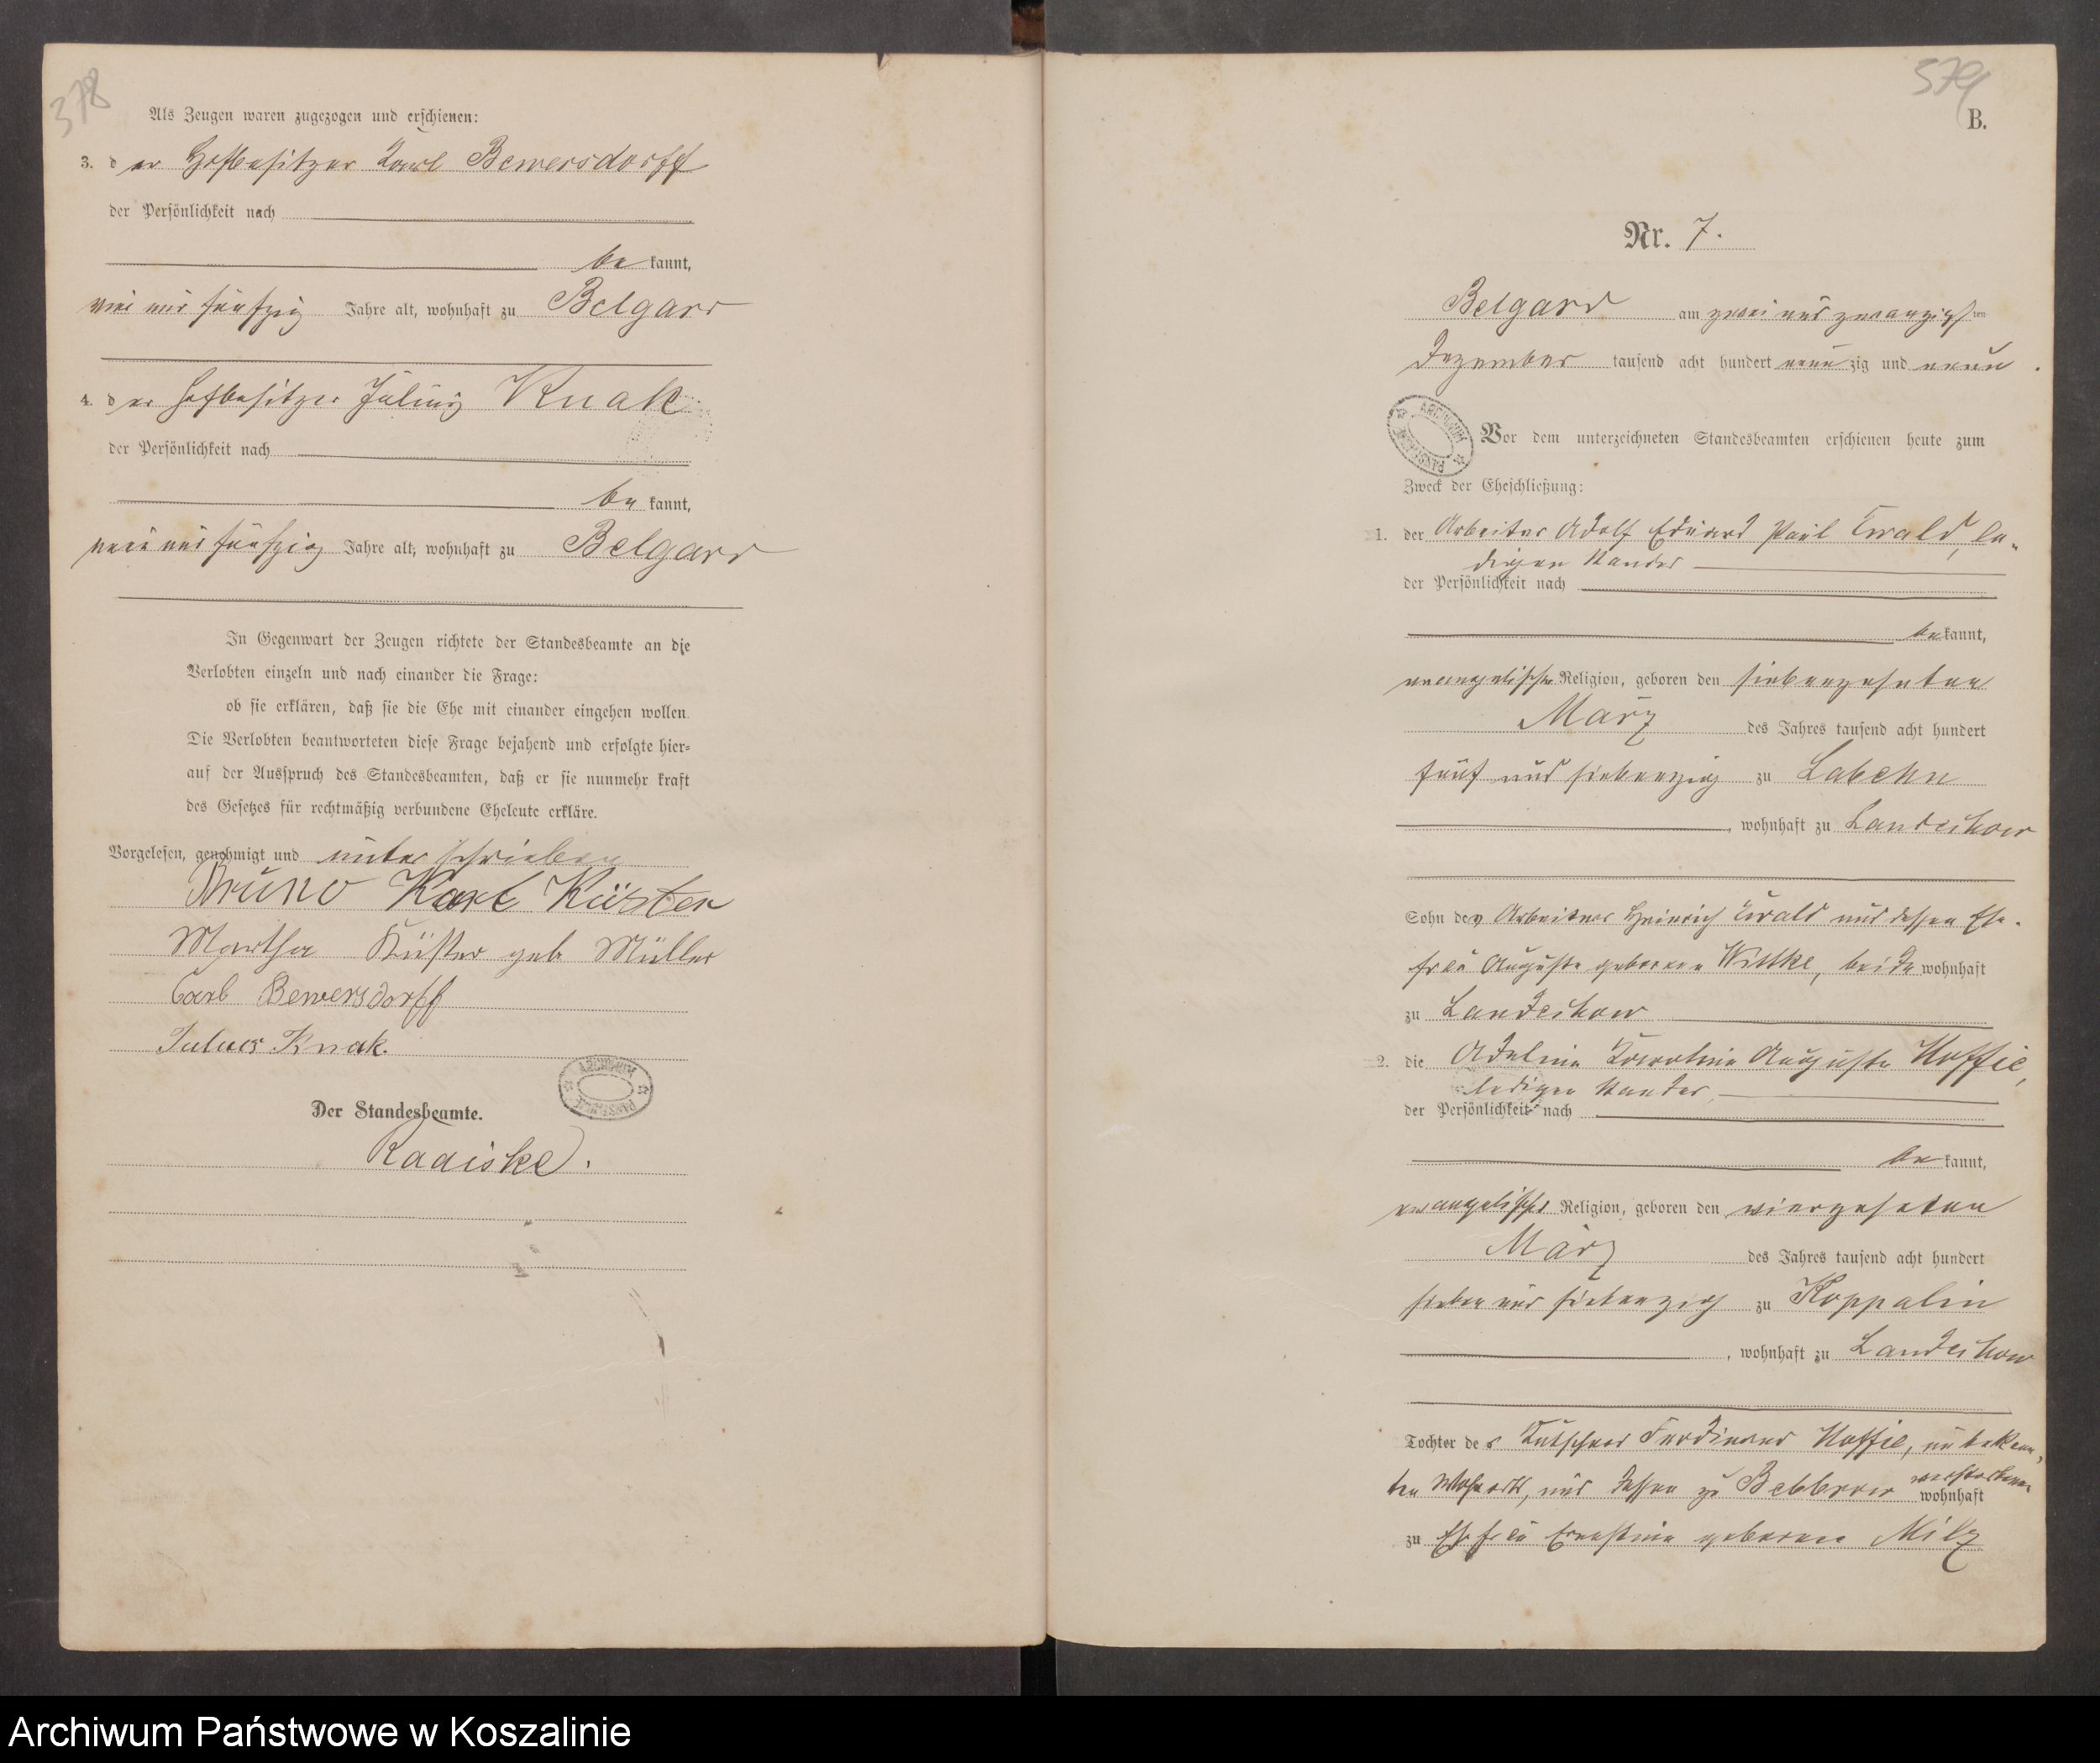 378
Als Zeugen waren zugezogen und erschienen:
3. der Hofbesitzer Karl Bewersdorff
der Persönlichkeit nach
be kannt,
vier und fünfzig Jahre alt, wohnhaft zu Belgard
4. der Hofbesitzer Julius Knak
der Persönlichkeit nach
be kannt,
neun und fünfzig Jahre alt, wohnhaft zu Belgard
In Gegenwart der Zeugen richtete der Standesbeamte an die
Verlobten einzeln und nach einander die Frage:
ob sie erklären, daß sie die Ehe mit einander eingehen wollen.
Die Verlobten beantworteten diese Frage bejahend und erfolgte hier=
auf der Ausspruch des Standesbeamten, daß er sie nunmehr kraft
des Gesetzes für rechtmäßig verbundene Eheleute erkläre.
Vorgelesen, genehmigt und unterschrieben
Bruno Karl Küster
Martha Küster geb Müller
Carl Bewersdorff
Julius Knak.
ARCHIWUM PAŃSTWOWE
Der Standesbeamte.
Radiske.
579
B.
Nr. 7.
Belgard am zwei und zwanzigsten
Dezember tausend acht hundert neunzig und neun.
ARCHIWUM PAŃSTWOWE
Vor dem unterzeichneten Standesbeamten erschienen heute zum
Zweck der Eheschließung:
1. der Arbeiter Adolf Eduard Paul Ewald, le-
digen Standes
der Persönlichkeit nach
bekannt,
evangelischer Religion, geboren den siebenzehnten
März des Jahres tausend acht hundert
fünf und siebenzig zu Labehn
, wohnhaft zu Landechow
Sohn des Arbeiters Heinrich Ewald und dessen Ehe-
frau Auguste geborene Wittke, beide wohnhaft
zu Landechow
2. die Adeline Karoline Auguste Noffie,
ledigen Standes,
der Persönlichkeit nach
be kannt,
evangelischer Religion, geboren den vierzehnten
März des Jahres tausend acht hundert
sieben und siebenzig zu Koppalin
, wohnhaft zu Landechow
Tochter des Kutschers Ferdinand Noffie, unbekann-
ten Wohnorts, und dessen zu Bebbrow verstorbenen
wohnhaft
zu Ehefrau Ernstine geborene Milz
Archiwum Państwowe w Koszalinie